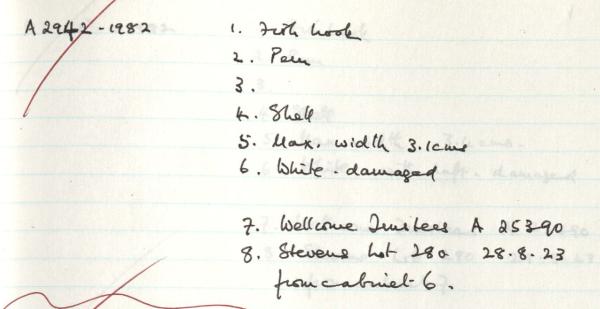 A 2942-1982
1. Fish hook
2. Peru
3.
4. Shell
5. Max. width 3.1cms
6. White - damaged
7. Wellcome Trustees A 25390
8. Stevens Lot 280 28.8.23
from cabinet 6.